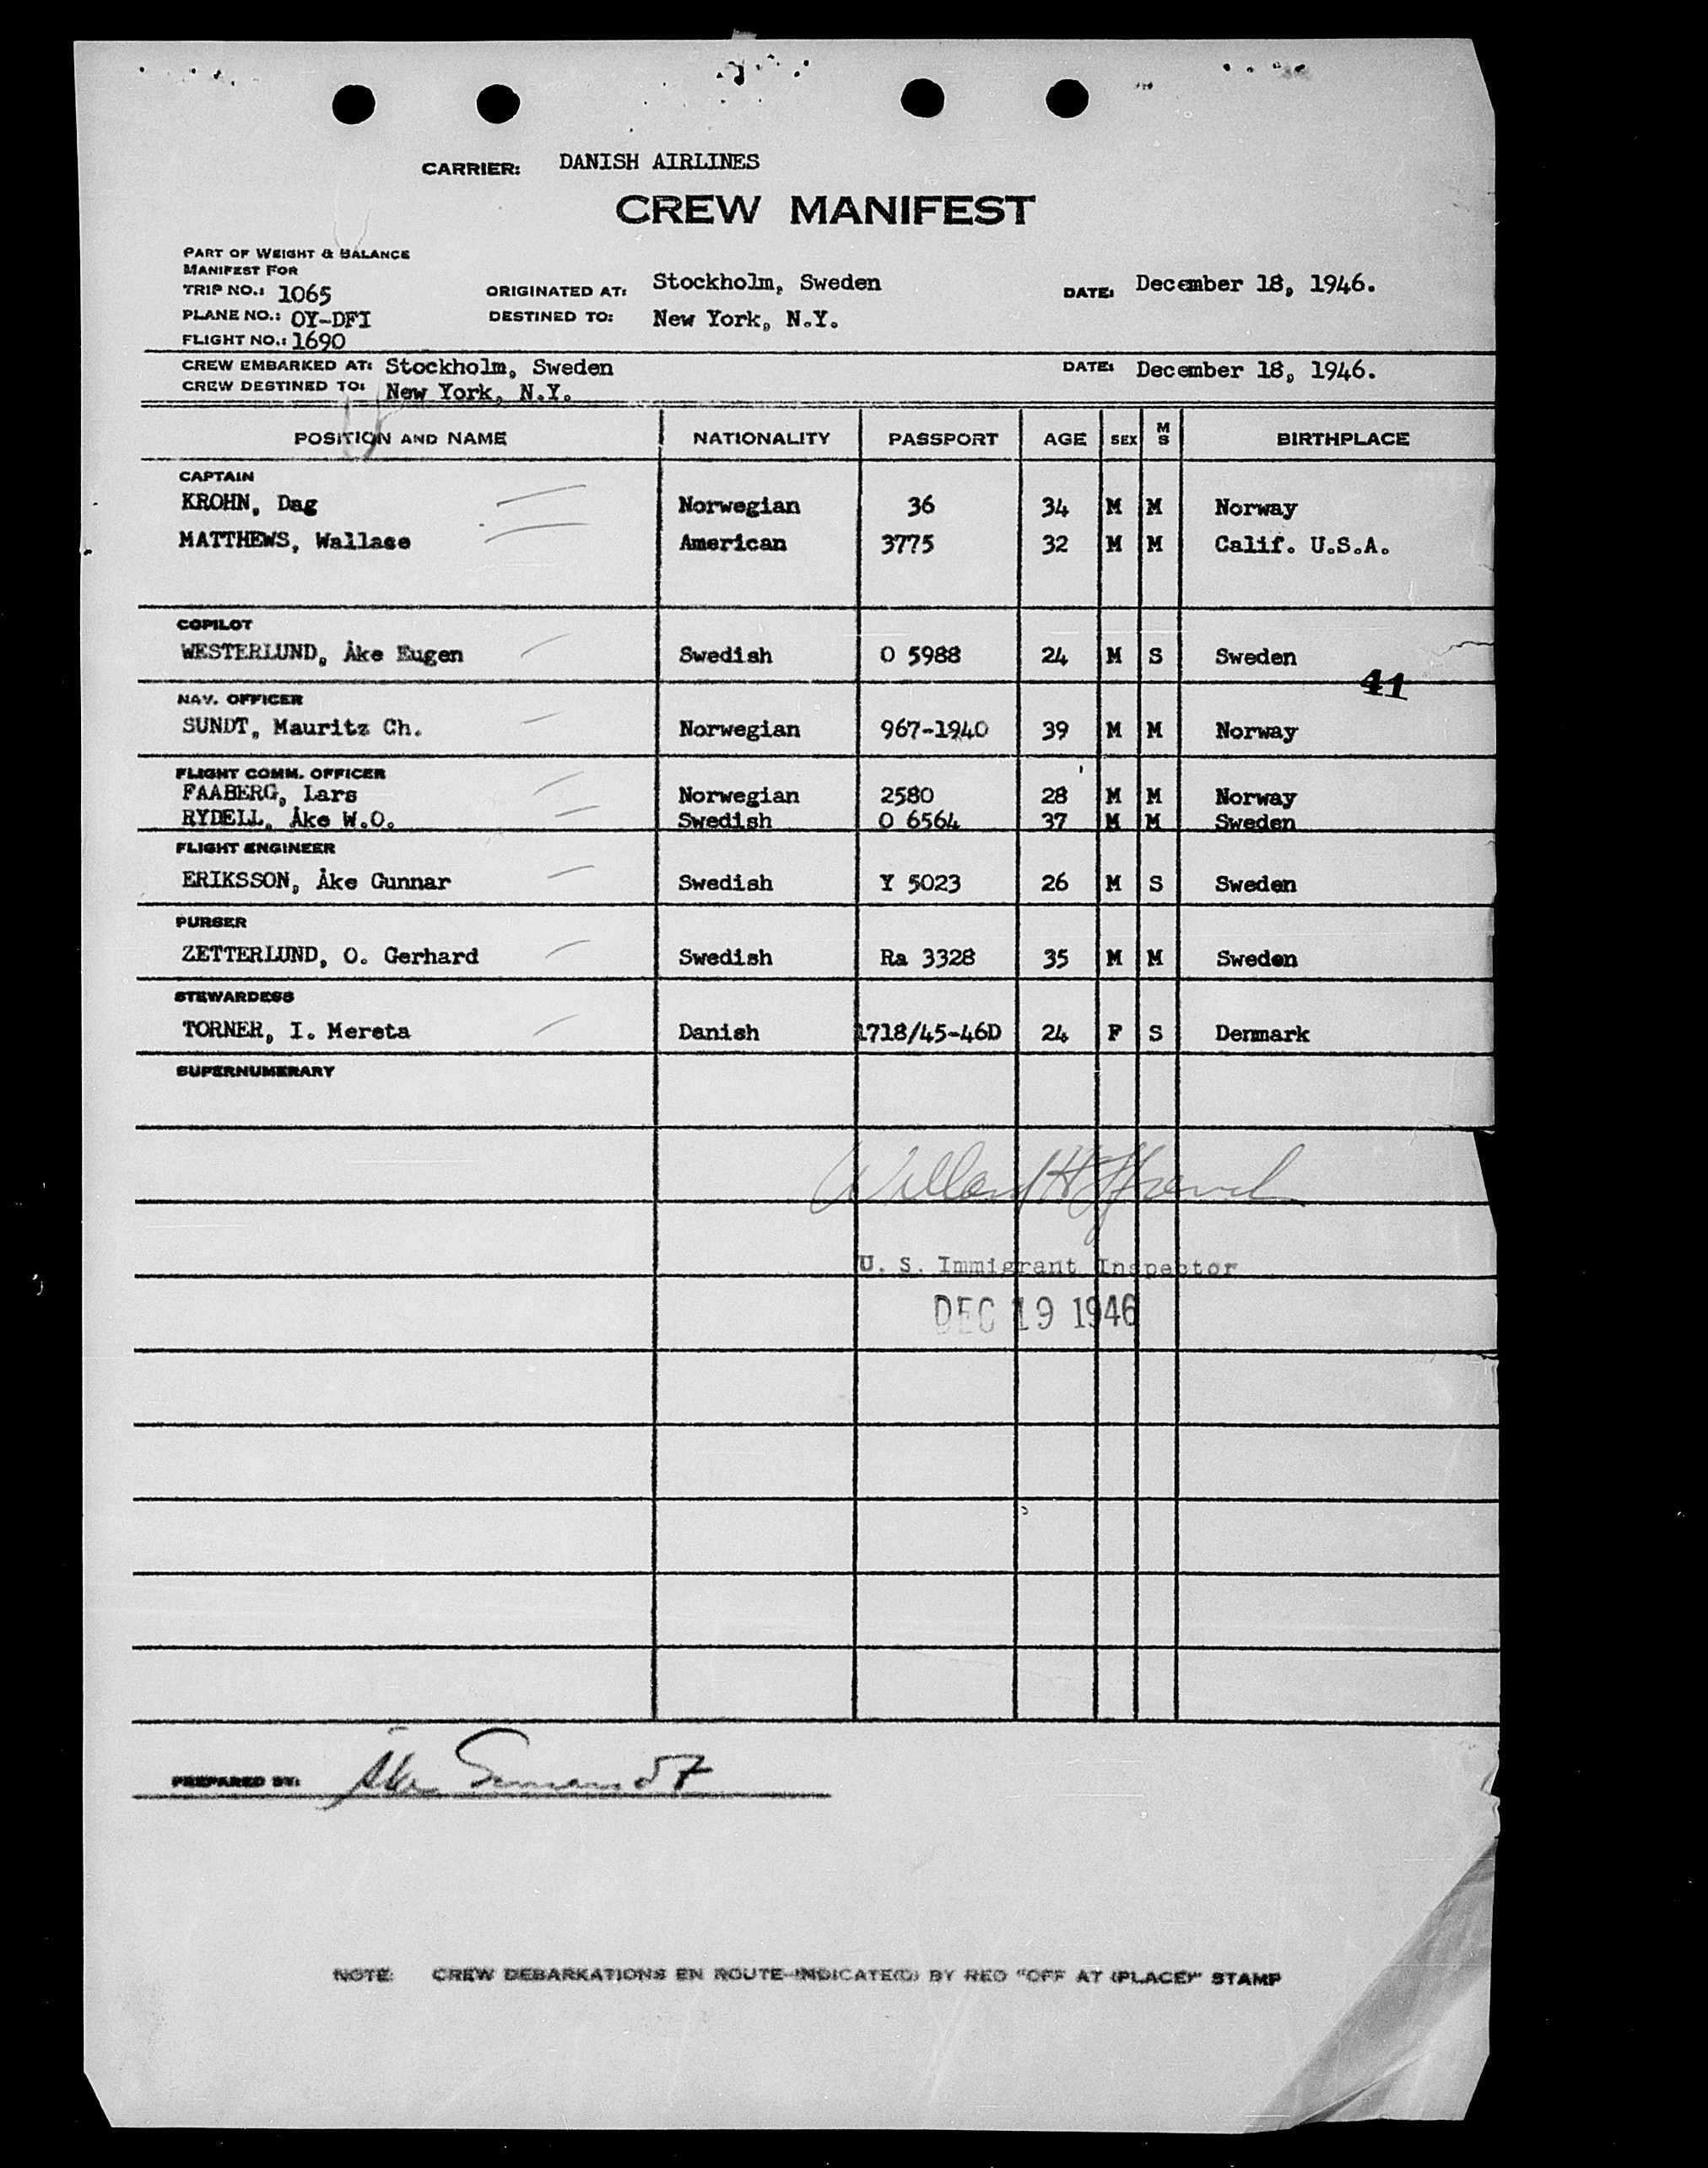 CARRIER: DANISH AIRLINES
CREW MANIFEST
PART OF WEIGHT & BALANCE
MANIFEST FOR
TRIP NO.: 1065
ORIGINATED AT: Stockholm, Sweden
DATE: December 18, 1946.
PLANE NO.: OY-DFI
DESTINED TO: New York, N.Y.
FLIGHT NO.: 1690
CREW EMBARKED AT: Stockholm, Sweden
DATE: December 18, 1946.
CREW DESTINED TO: New York, N.Y.
POSITION AND NAME NATIONALITY PASSPORT AGE SEX M S BIRTHPLACE
CAPTAIN
KROHN, Dag Norwegian 36 34 M M Norway
MATTHEWS, Wallase American 3775 32 M M Calif. U.S.A.
COPILOT
WESTERLUND, Åke Eugen Swedish O 5988 24 M S Sweden
41
NAV. OFFICER
SUNDT, Mauritz Ch. Norwegian 967-1940 39 M M Norway
FLIGHT COMM. OFFICER
FAABERG, Lars Norwegian 2580 28 M M Norway
RYDELL, Åke W.O. Swedish O 6564 37 M M Sweden
FLIGHT ENGINEER
ERIKSSON, Åke Gunnar Swedish Y 5023 26 M S Sweden
PURSER
ZETTERLUND, O. Gerhard Swedish Ra 3328 35 M M Sweden
STEWARDESS
TORNER, I. Mereta Danish 1718/45-46D 24 F S Denmark
SUPERNUMERARY
U. S. Immigrant Inspector
DEC 19 1946
PREPARED BY: Åke
NOTE: CREW DEBARKATIONS EN ROUTE-INDICATE(D) BY RED "OFF AT (PLACE)" STAMP